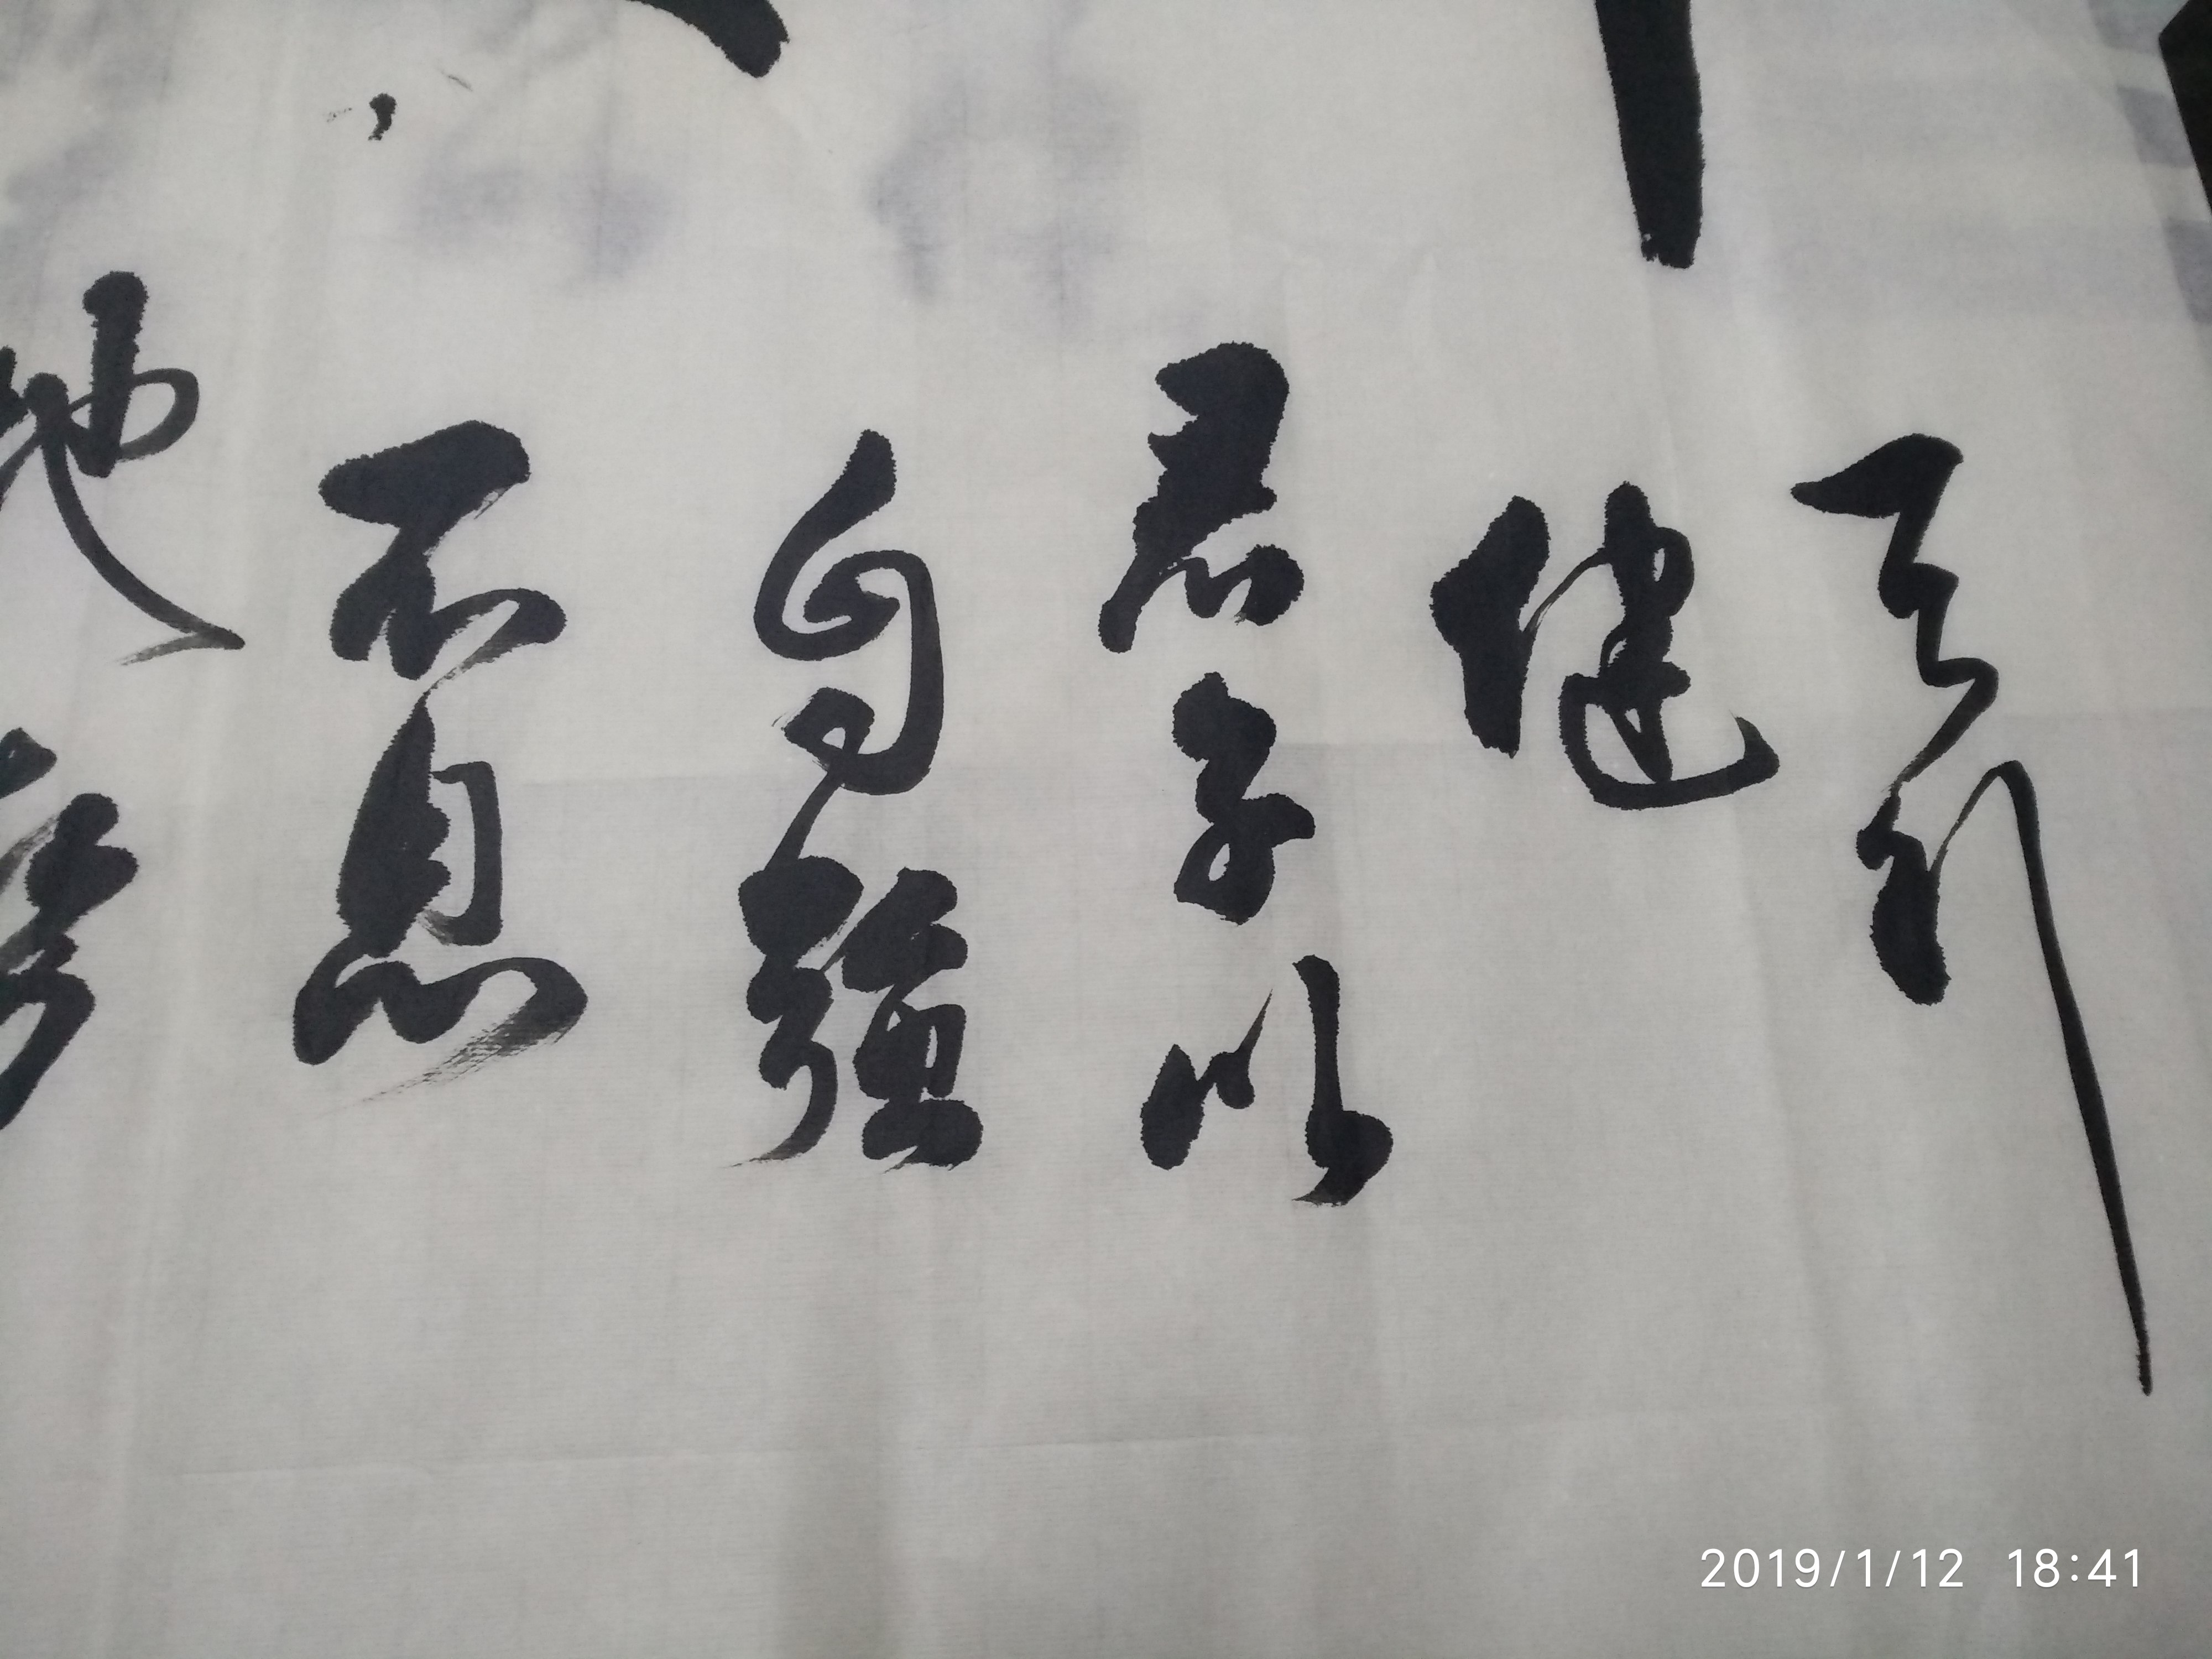 天行
健
君子以
自强
不息
地势
2019/1/12 18:41